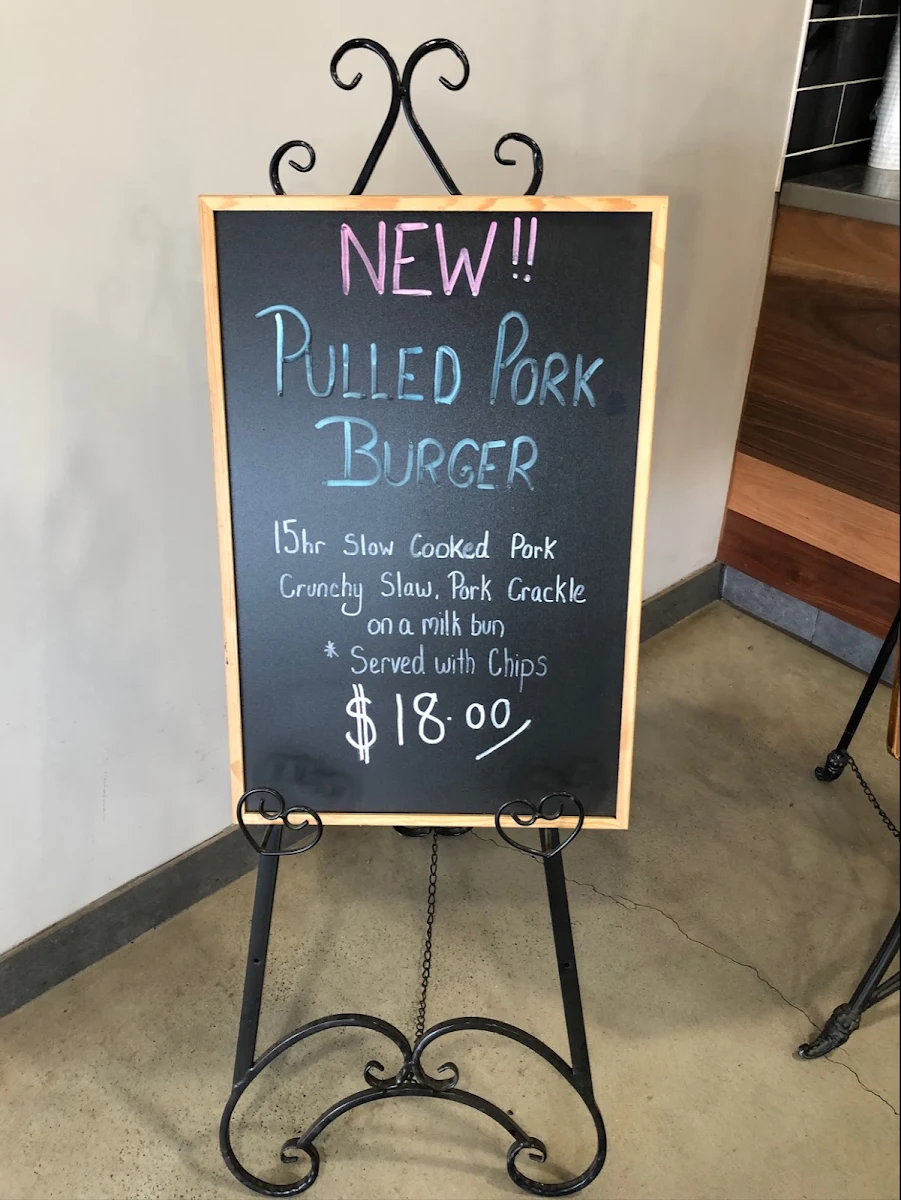 NEW!!
PULLED PORK
BURGER
15hr Slow Cooked Pork
Crunchy Slaw, Pork Crackle
on a milk bun
* Served with Chips
$18.00